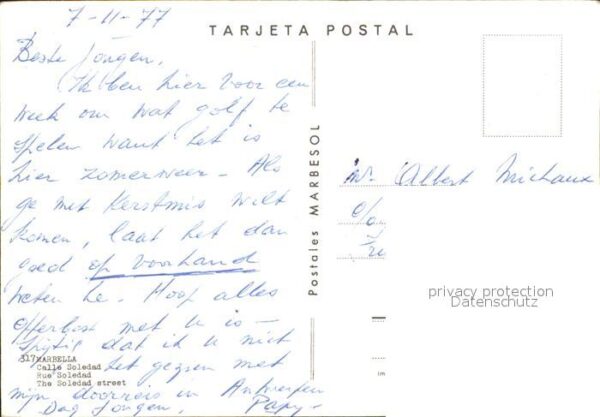 7-11-77
TARJETA POSTAL
Beste Jongen,
Ik ben hier voor een
week om wat golf te
spelen want het is
hier zomerweer - Als
ge met Kerstmis wilt
komen, laat het dan
goed op voorhand
weten he. Hoop alles
opperbest met u is -
Spijtig dat ik u niet
heb gezien met
mijn doorreis in Antwerpen
Dag Jongen, Papy-
317 MARBELLA
Calle Soledad
Rue Soledad
The Soledad street
Postales MARBESOL
Mr. Albert Michaux
c/o
privacy protection
Datenschutz